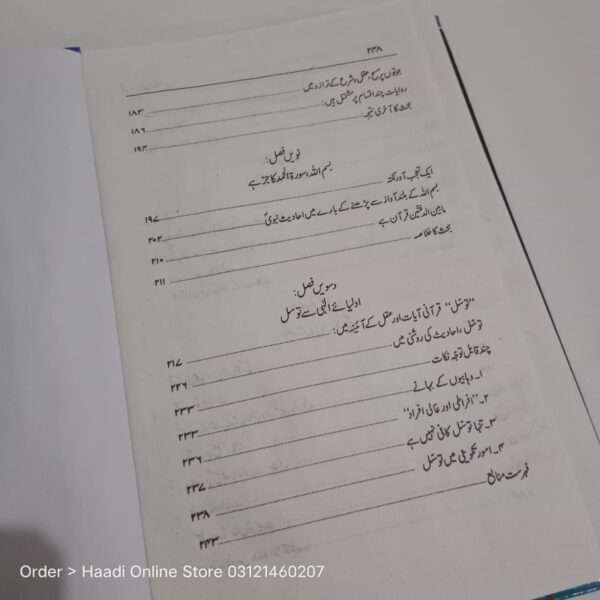 ۲۳۸
جوتوں پر مسح، عقل و شرع کے ترازو میں
روایات چند اقسام پر مشتمل ہیں: ۱۸۳
بحث کا آخری نتیجہ ۱۸۶
۱۹۳
نویں فصل:
بسم اللہ، سورۃ الحمد کا جز ہے
ایک تعجب آور نکتہ ۱۹۷
بسم اللہ کے بلند آواز سے پڑھنے کے بارے میں احادیث نبویؐ ۲۰۲
مابین الدفتین قرآن ہے ۲۱۰
بحث کا خلاصہ ۲۱۱
دسویں فصل:
اولیائے الٰہی سے توسل
"توسّل" قرآنی آیات اور عقل کے آئینہ میں: ۲۱۷
توسّل، احادیث کی روشنی میں ۲۲۶
چند قابل توجہ نکات ۲۳۳
۱۔ وہابیوں کے بہانے ۲۳۳
۲۔ "افراطی اور غالی افراد" ۲۳۶
۳۔ تنہا توسّل کافی نہیں ہے ۲۳۷
۴۔ امور تکوینی میں توسّل ۲۳۸
فہرست منابع ۲۴۳
Order > Haadi Online Store 03121460207